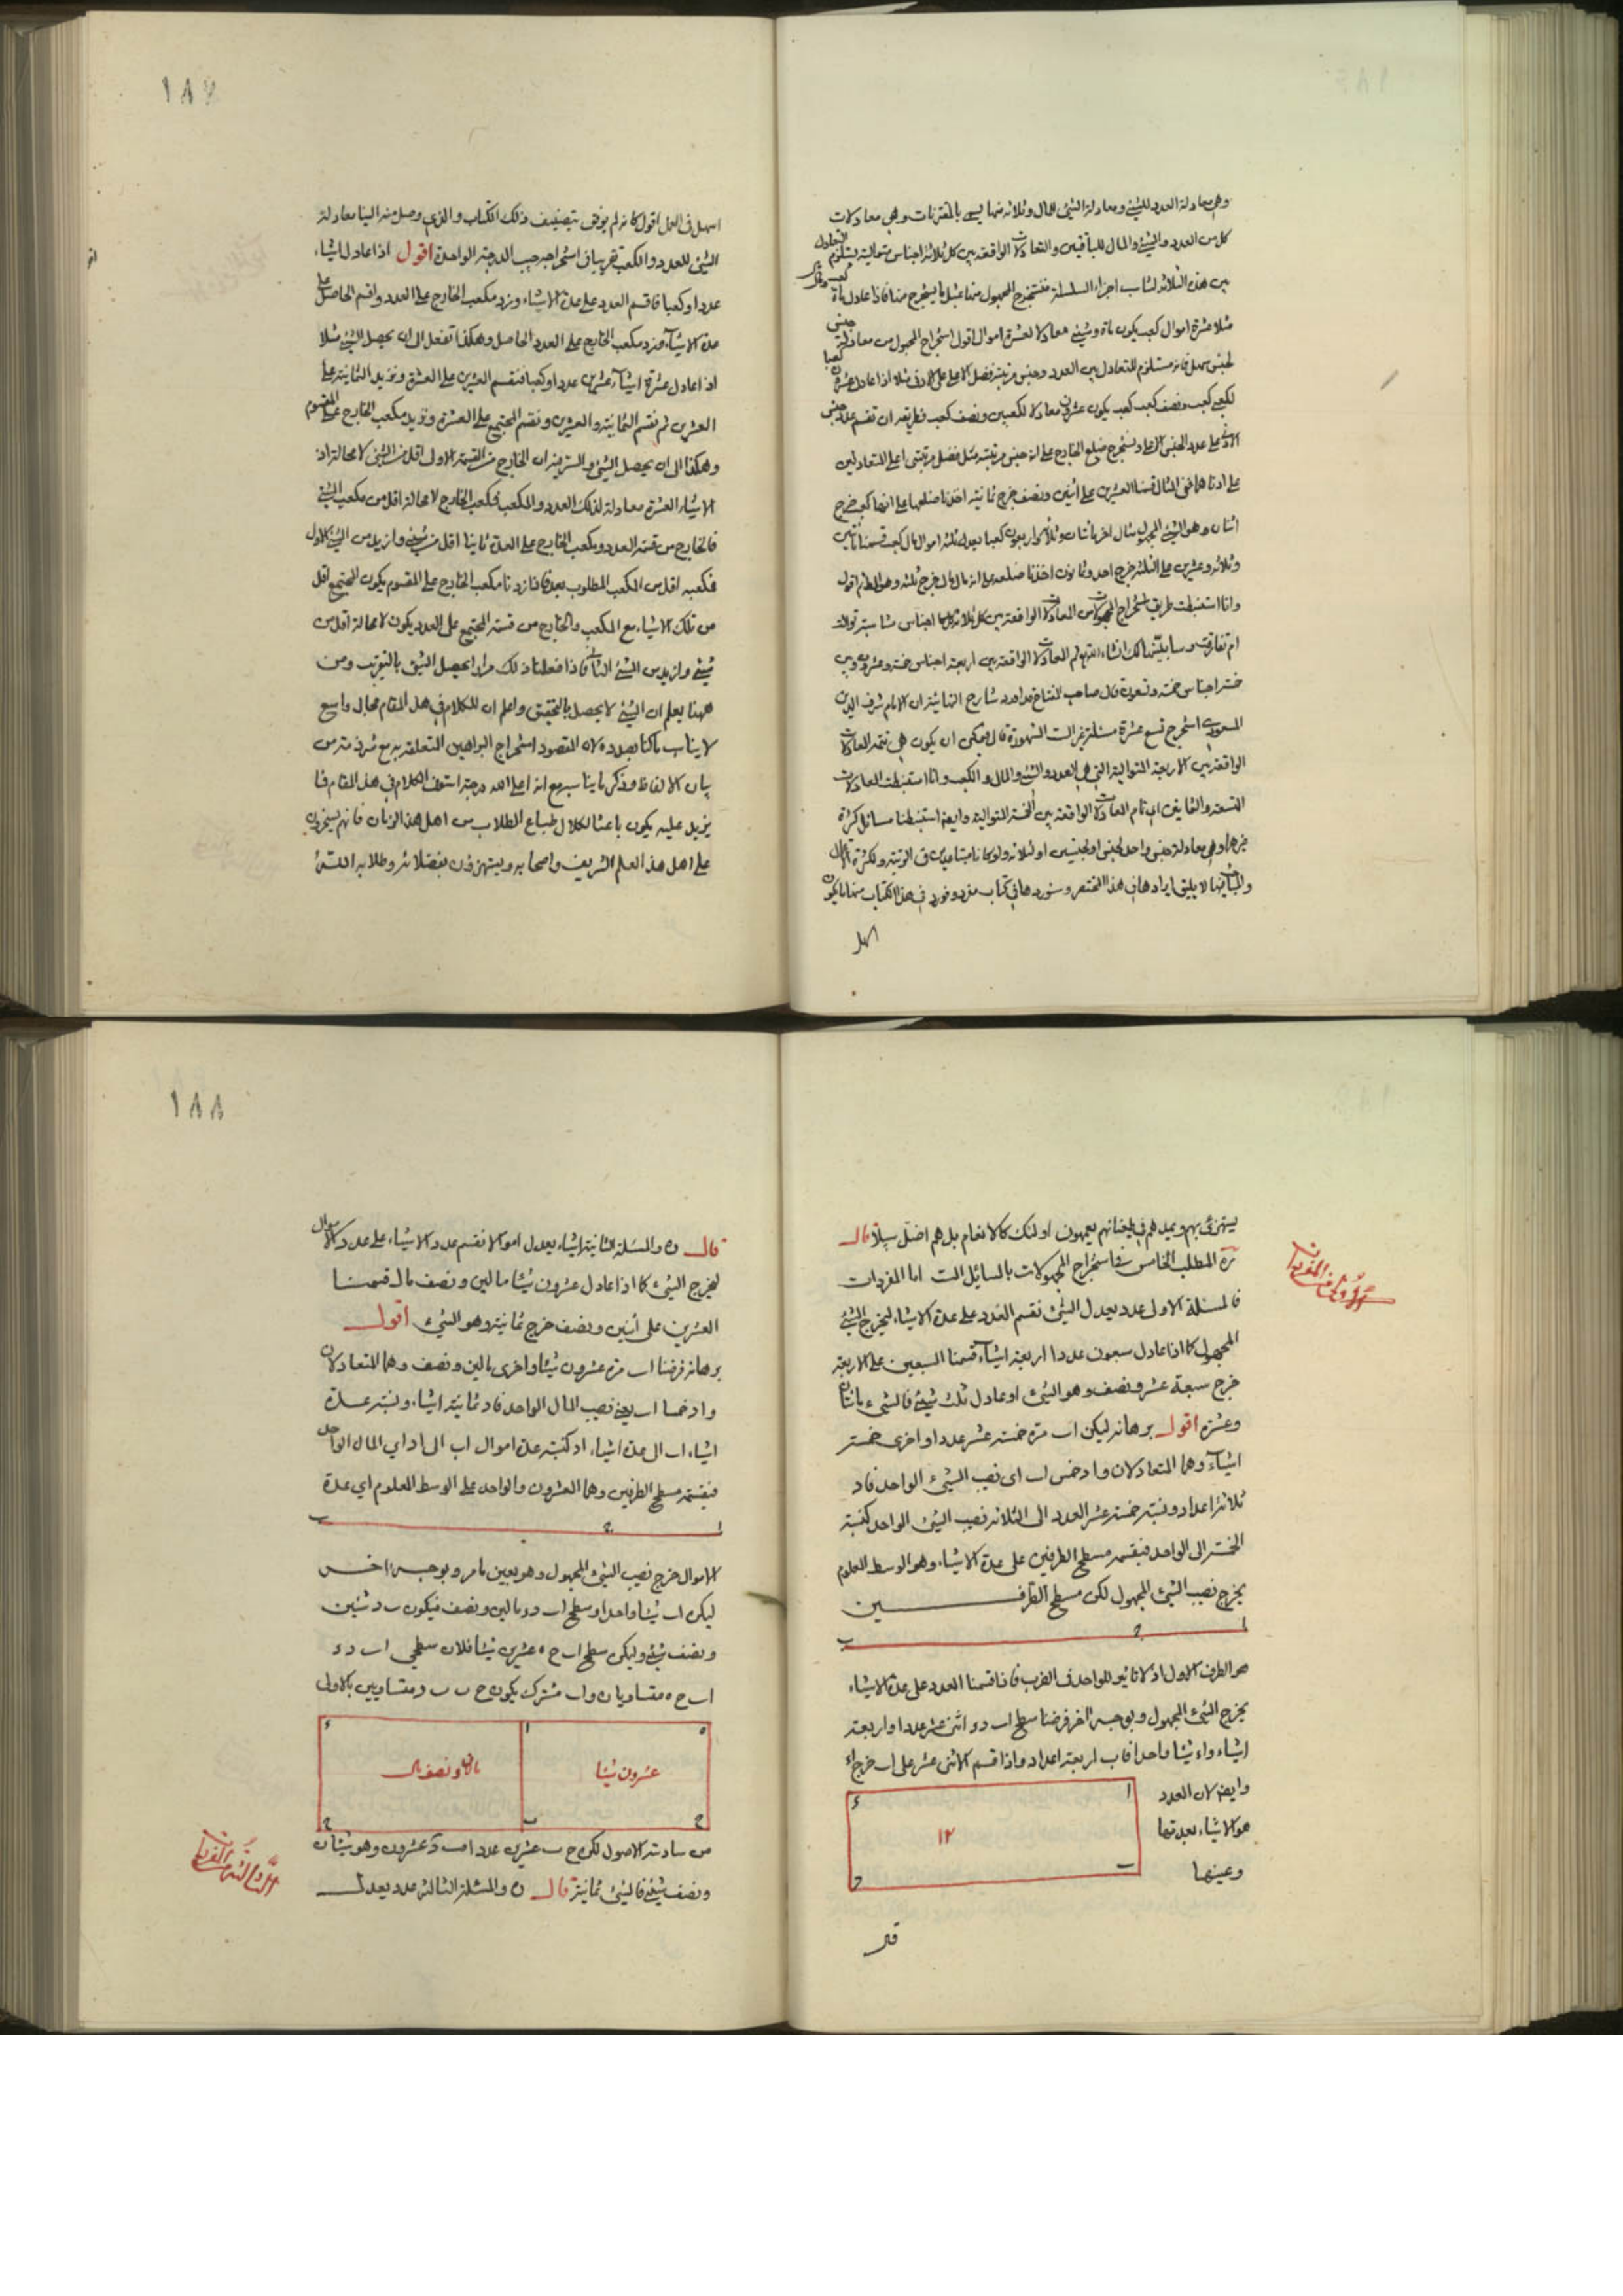 وهي معادلة العدد للشيئ ومعادلة الشيئ للمال وثلاثه منها يسمى بالمقترنات وهي معادلات
كل من العدد والشيئ والمال للباقيين والتعادلات الواقعة بين كل ثلاثة اجناس متوالية يستلزم التعادل
بين هذه الثلاثة لتناسب اجزاء السلسلة فيستخرج المجهول منها بمثل ما يستخرج منها فاذا عادل مأة كعب
مثلا عشرة اموال كعب يكون مأة وشيئ معادلا لعشرة اموال اقول استخراج المجهول من معادلة جنس
لجنس سهل فانه مستلزم للتعادل بين العدد وجنس مرتبته فضل الاعلى على الادنى مثلا اذا عادل عشرون كعبا
لكعبي كعب ونصف كعب كعب يكون عشرون معادلا لكعبين ونصف كعب فطريقه ان تقسم عدد جنس
الادنى على عدد الجنس الاعلى ونستخرج ضلع الخارج على انه جنس مرتبته مثل فضل مرتبتي اعلى المتعادلين
على ادناهما ففي المثال قسمنا العشرين على اثنين ونصف خرج ثمانية اخذنا ضلعها على انها كعب خرج
اثنان وهو الشيئ المجهول مثال اخر مأتان وثلاثة واربعون كعبا يعدل ثلثة اموال مال كعب قسمنا مأتين
وثلاثة واربعين على الثلثة خرج احد وثمانون اخذنا ضلعه على انه مال مال خرج ثلثه وهو المطلوم اقول
وانا استنبطت طريق استخراج المجهولات من المعادلات الواقعة بين كل ثلاثة اجناس متناسبة توالت
ام تفارقت وسابينها لك انشاء الله ثم المعادلات الواقعة بين اربعة اجناس خمسة وعشرون وبين
خمسة اجناس خمسة وتسعون قال صاحب المفتاح قد اورد شارح البهائية ان الامام شرف الدين
المسعودي استخرج تسع عشرة مسئلة غير الست المشهورة قال فيمكن ان يكون هي تتمة المعادلات
الواقعة بين الاربعة المتوالية التي هي العدد والشيئ والمال والكعب وانا استنبطت المعادلات
التسعة والثمانين التمام المعادلات الواقعة بين الخمسة المتوالية وايضا استنبطنا مسائل كثيرة
غيرها وهي معادلة جنس واحد لجنس او لجنسين او ثلاثة ولو كانا متباعدين في الرتبة ولكثرة
والمباحث لا يليق ايرادها في هذا المختصر وسنوردها في كتاب مفرد ونورد في هذا الكتاب منها ما يكون
اسهل
١٨٧
اسهل في العمل اقول كانه لم يوفق بتصنيف ذلك الكتاب والذي وصل منه الينا معادلة
الشيئ للعدد والكعب تقريبا في استخراجه جيب الدرجة الواحدة اقول اذا عادل اشياء
عددا وكعبا فاقسم العدد على عدة الاشياء وزد مكعب الخارج على العدد واقسم الحاصل على
عدة الاشياء وزد مكعب الخارج على العدد الحاصل وهكذا تفعل الى ان يحصل الشيئ مثلا
اذا عادل عشرة اشياء عشرين عددا وكعبا فنقسم العشرين على العشرة ونزيد الثمانية على
العشرين ثم نقسم الثمانية والعشرين ونقسم المجتمع على العشرة ونزيد مكعب الخارج على المقسوم
وهكذا الى ان يحصل الشيئ والسر فيه ان الخارج من القسمة الاولى اقل من الشيئ لا محالة اذ
الاشياء العشرة معادلة لذلك العدد والمكعب فمكعب الخارج لا محالة اقل من مكعب الشيئ
فالخارج من قسمة العدد ومكعب الخارج على العدة ثانيا اقل من شيئ وازيد من الشيئ الاول
فمكعبه اقل من الكعب المطلوب بعد فاذا زدنا مكعب الخارج على المقسوم يكون المجتمع اقل
من تلك الاشياء مع المكعب والخارج من قسمة المجتمع على العدد يكون لا محالة اقل من
شيئ وازيد من الشيئ الثاني فاذا فعلنا ذلك مرارا يحصل الشيئ بالتقريب ومن
ههنا يعلم ان الشيئ لا يحصل بالتحقيق واعلم ان للكلام في هذا المقام مجال واسع
لا يناسب ما كنا بصدده لان المقصود استخراج البراهين المتعلقة به مع شرذمة من
بيان الالفاظ وذكر ما يناسبه مع انه اعلى الله درجته استوفى الكلام في هذا المقام فما
يزيد عليه يكون باعثا لكلال طباع الطلاب من اهل هذا الزمان فانهم يسخرون
على اهل هذا العلم الشريف واصحابه ويستهزؤن بفضلائه وطلابه الله
يستهزئ بهم ويمدهم في طغيانهم يعمهون اولئك كالانعام بل هم اضل سبيلا قال
المطلب الخامس في استخراج المجهولات بالمسايل الست اما المفردات
الاولى من المفردات
فالمسئلة الاولى عدد يعدل الشيئ نقسم العدد على عدة الاشياء ليخرج الشيئ
المجهول كما اذا عادل سبعون عددا اربعة اشياء قسمنا السبعين على الاربعة
خرج سبعة عشر ونصف وهو الشيئ او عادل ثلث شيئ فالشيء مائتان
وعشرة اقول برهانه ليكن اب مرة خمسة عشر عددا واخرى خمسة
اشياء وهما المتعادلان واد خمس اب اى نصيب الشيئ الواحد فاد
ثلاثة اعداد ونسبة خمسة عشر العدد الى الثلاثة نصيب الشيئ الواحد كنسبة
الخمسة الى الواحد فبقسمة مسطح الطرفين على عدة الاشياء وهو الوسط المعلوم
يخرج نصيب الشيئ المجهول لكن مسطح الطرفين
ا د ب
هو الطرف الاول اذ لا تاثير للواحد في الضرب فاذا قسمنا العدد على عدة الاشياء
يخرج الشيئ المجهول وبوجه اخر فرضنا سطح اب د اثنى عشر عددا واربعة
اشياء واء شيئا واحدا فاب اربعة اعداد واذا قسم الاثنى عشر على اب خرج اء
وايضا لان العدد
هو الاشياء بعدتها
وعينها
ا ء ١٢ ب ج
قال
١٨٨
قال ن والمسئلة الثانية اشياء يعدل اموالا نقسم عدد الاشياء على عدد الاموال
ليخرج الشيئ كما اذا عادل عشرون شيئا مالين ونصف مال قسمنا
العشرين على اثنين ونصف خرج ثمانية وهو الشيئ اقول
برهانه فرضنا اب مرة عشرون شيئا واخرى مالين ونصف وهما المتعادلان
واد خمسا اب يعني نصيب المال الواحد فاد ثمانية اشياء ونسبة عدة
اشياء اب الى عدة اشياء اد كنسبة عدة اموال اب الى اد اي المال الواحد
فبقسمة مسطح الطرفين وهما العشرون والواحد على الوسط المعلوم اي عدة
ا د ب
الاموال خرج نصيب الشيئ المجهول وهو بعين ما مر وبوجه اخر
ليكن اب شيئا واحدا وسطح اب د مالين ونصف فيكون ب د شيئين
ونصف شيئ وليكن سطح اب ح ه عشرين شيئا فلان سطحي اب د ء
اب ح ه متساويان واب مشترك يكون ح ب ب د متساويين بالاولى
ه ا ء
عشرون شيئا
مالان ونصف مال
ح ب د
من سادسة الاصول لكن ح ب عشرين عددا فب د عشرون وهو شيئان
ونصف شيئ فالشيئ ثمانية قال ن والمسئلة الثالثة عدد يعدل
الثالثة من المفردات